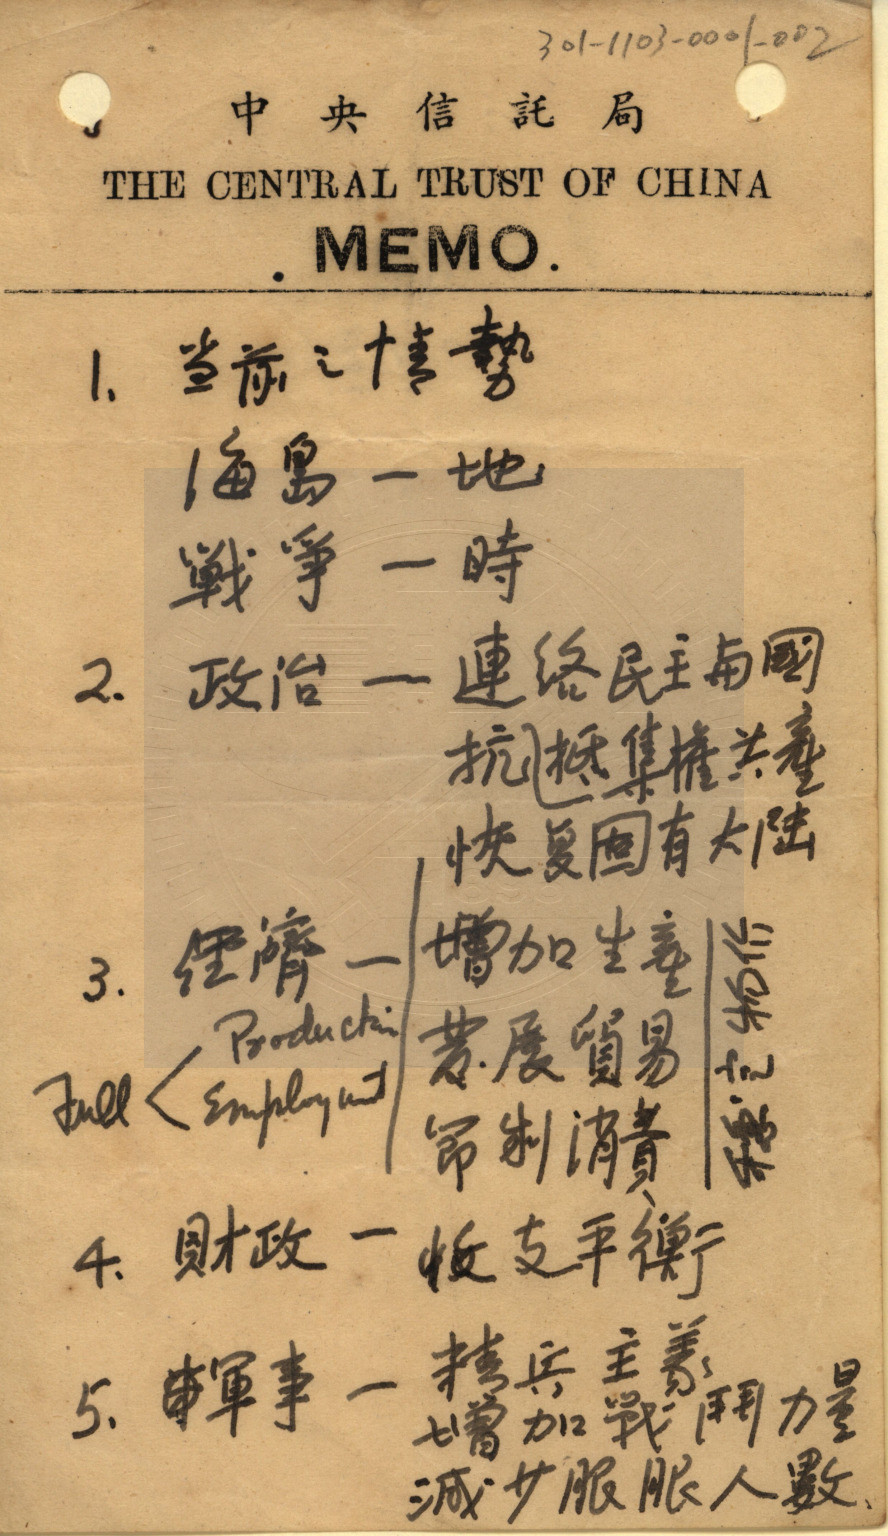 301-1103-0001-002
中央信託局
THE CENTRAL TRUST OF CHINA
MEMO.
1. 当前之情勢
海島 — 地
戰爭 — 時
2. 政治 — 連絡民主与國
抗抵集權共產
恢复固有大陸
3. 經濟 — 增加生產
發展貿易
節制消費
穩定物价
Full < Production
Employment
4. 財政 — 收支平衡
5. 軍事 — 精兵主義
增加戰鬥力量
減少服人數